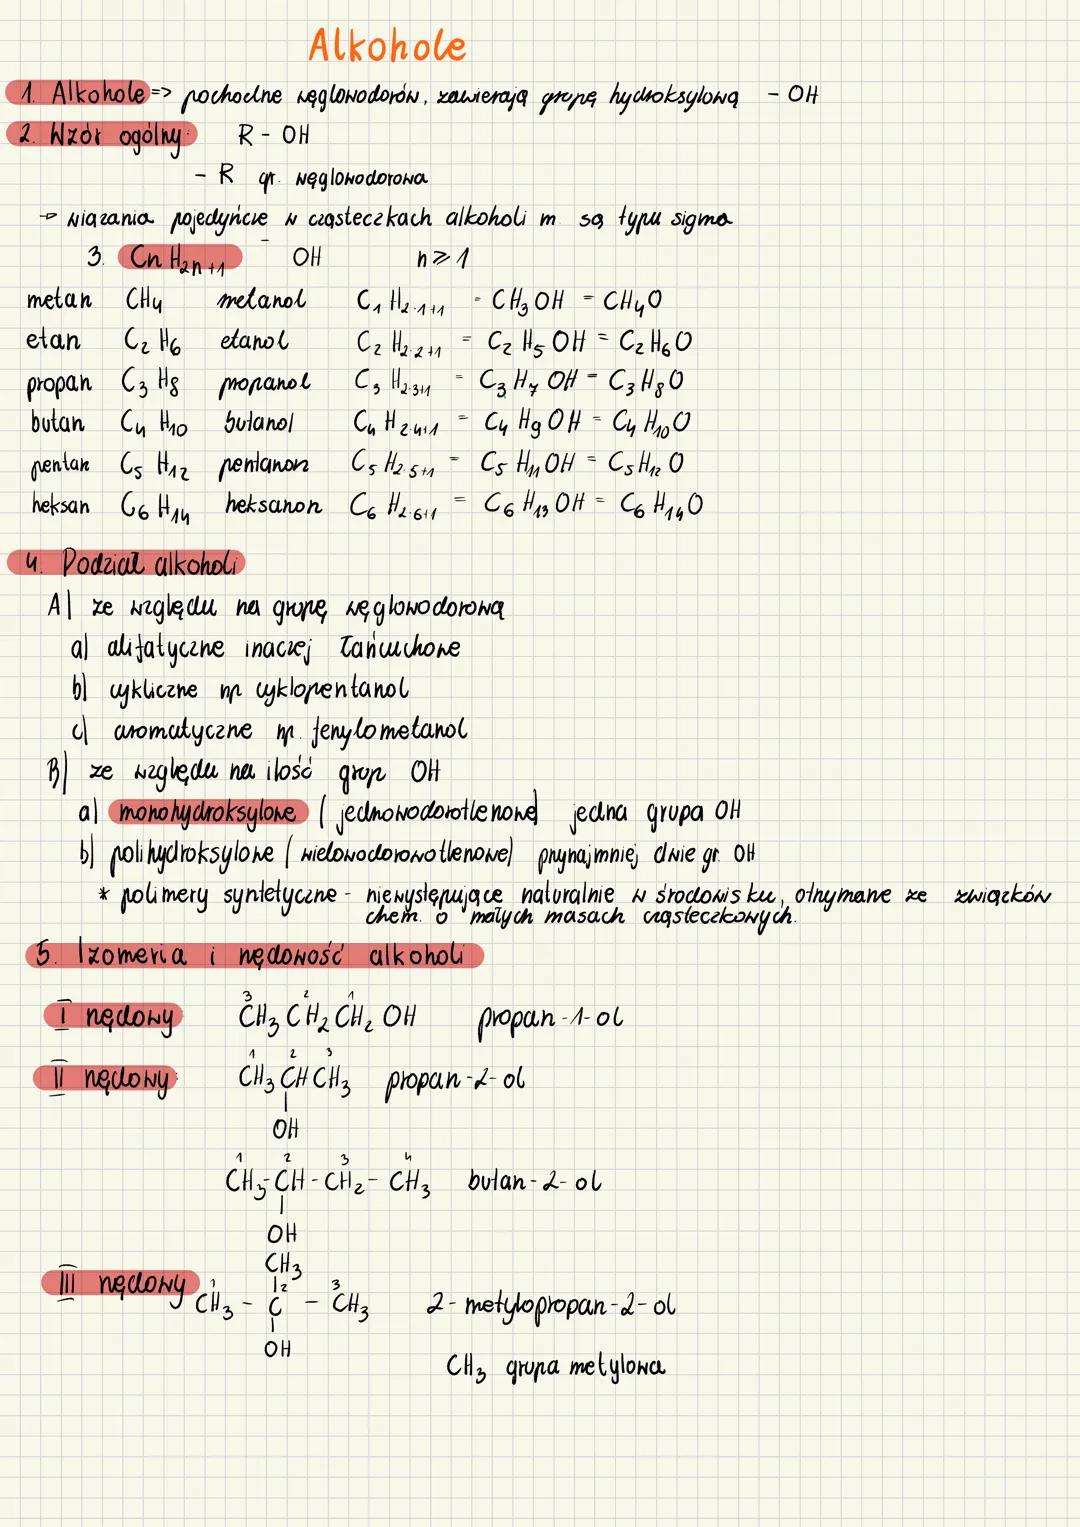 Alkohole
1. Alkohole => pochodne węglowodorów, zawierają grupę hydroksylową - OH
2. Wzór ogólny: R - OH
- R gr. węglowodorowa
→ wiązania pojedyńcze w cząsteczkach alkoholi m są typu sigma
3. CnH2n+1 - OH n ≥ 1
metan CH4 metanol C1 H2·1+1 - CH3 OH = CH4O
etan C2 H6 etanol C2 H2·2+1 = C2 H5 OH = C2 H6 O
propan C3 H8 propanol C3 H2·3+1 = C3 H7 OH = C3 H8 O
butan C4 H10 butanol C4 H2·4+1 = C4 H9 OH = C4 H10 O
pentan C5 H12 pentanon C5 H2·5+1 = C5 H11 OH = C5 H12 O
heksan C6 H14 heksanon C6 H2·6+1 = C6 H13 OH = C6 H14 O
4. Podział alkoholi
A) ze względu na grupę węglowodorową
a) alifatyczne inaczej łańcuchowe
b) cykliczne np cyklopentanol
c) aromatyczne np. fenylometanol
B) ze względu na ilość grup OH
a) monohydroksylowe (jednowodorotlenowe) jedna grupa OH
b) polihydroksylowe (wielowodorowotlenowe) przynajmniej dwie gr. OH
* polimery syntetyczne - niewystępujące naturalnie w środowisku, otrzymane ze związków
chem. o małych masach cząsteczkowych.
5. Izomeria i rzędowość alkoholi
I rzędowy 3 2 1 CH3 CH2 CH2 OH propan-1-ol
II rzędowy: 1 2 3 CH3 CH CH3 propan-2-ol
|
OH
1 2 3 4
CH3-CH-CH2-CH3 butan-2-ol
|
OH
CH3
III rzędowy 1 |2 3 CH3 - C - CH3 2-metylopropan-2-ol
|
OH
CH3 grupa metylowa